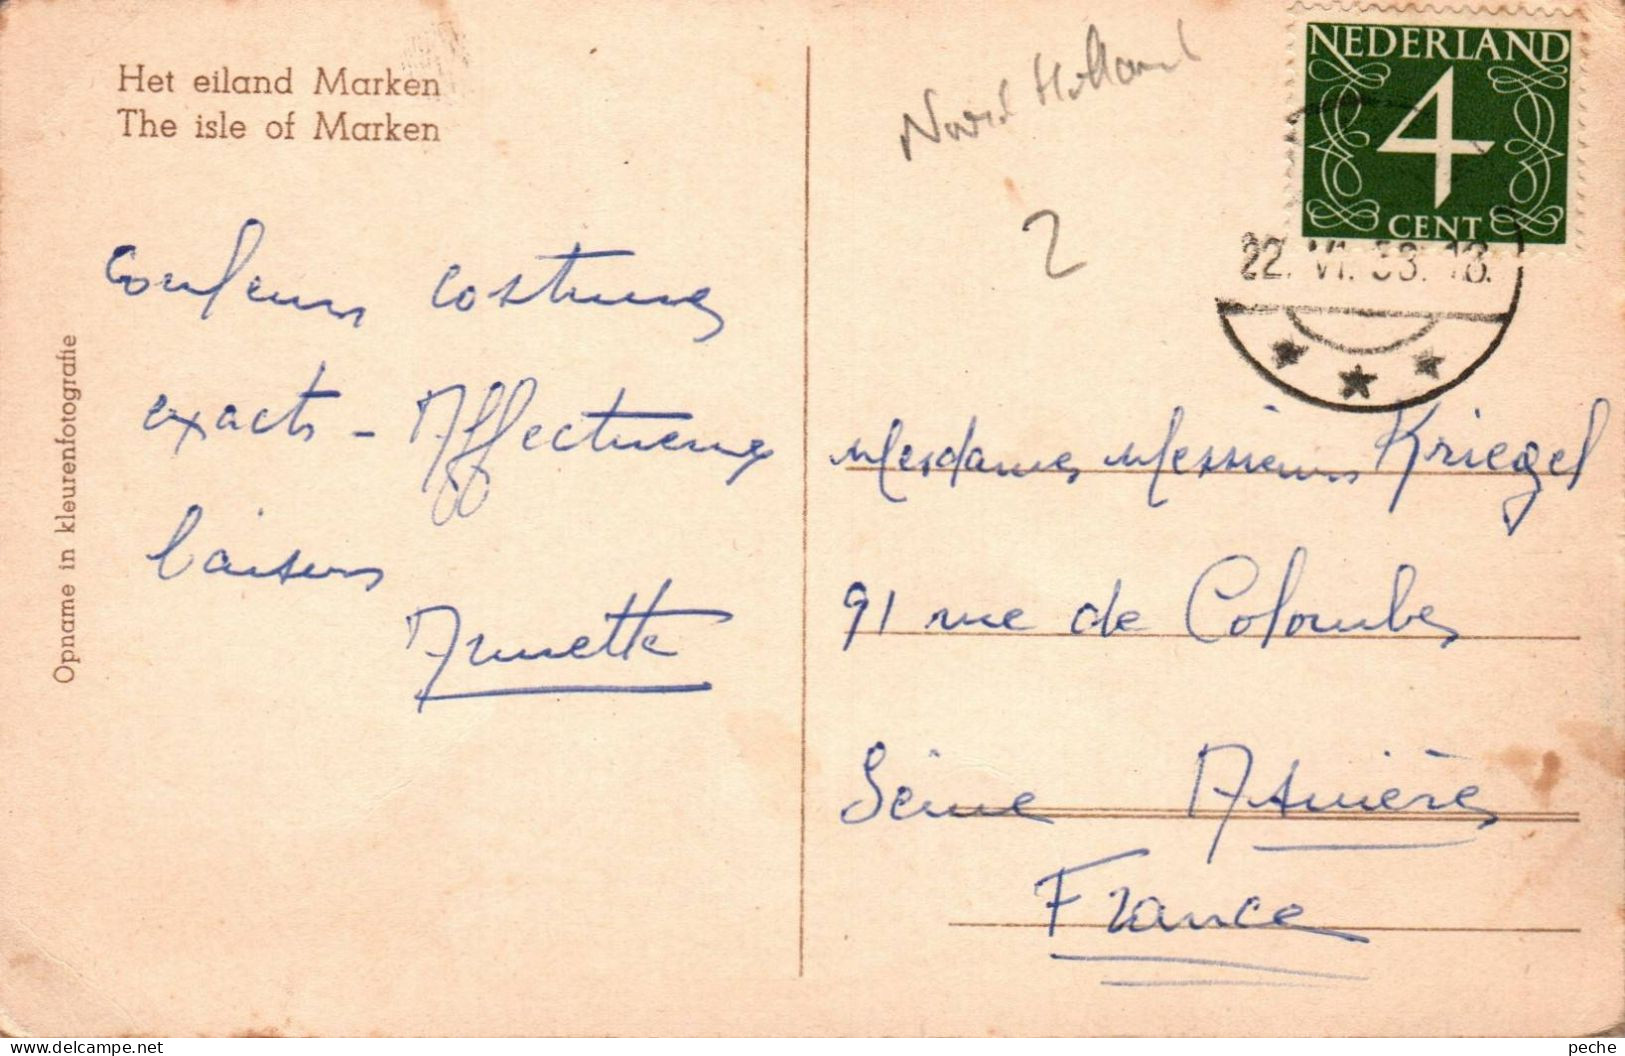 Het eiland Marken
The isle of Marken
Opname in kleurenfotografie
couleurs costumes
exacts - Affectueux
baisers
Annette
Nord Holland
2
NEDERLAND
4
CENT
22. VI. 53. 18.
Mesdames Messieurs Kriegel
91 rue de Colombes
Seine Asnières
France
peche